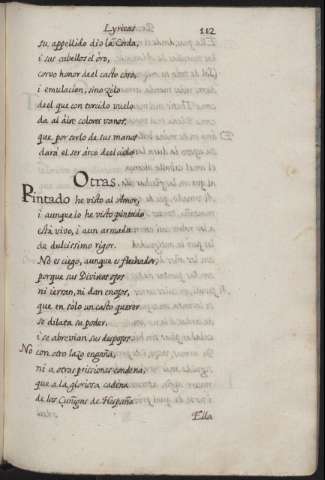 Lyricas 112
su, appellido dio la Cerda,
i sus cabellos el oro,
corvo honor de el casto coro,
i emulacion, sino zelo
de el que con torcido vuelo
da al aire colores vanos,
que por serlo de sus manos
dará el ser arco de el cielo
Otras
Pintado he visto al Amor,
i aunque lo he visto pintado
está vivo, i aun armado
da dulcissimo rigor.
No es ciego, aunque es flechador,
porque sus Divinos ojos
ni ieren, ni dan enojos,
que en solo un casto querer
se dilata su poder,
i se abrevian sus despojos
No con otro lazo engaña,
ni a otras prissiones condena,
que a la gloriosa cadena
de los Çuñigas de Hespaña
Ella